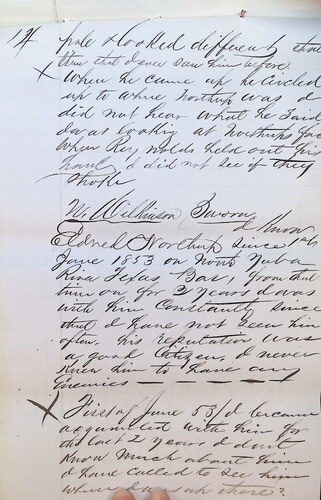 14 pale & looked different than
than that I ever saw him before.
X When he came up he circled
up to where Northup was I
did not hear what he said
I was looking at Northups face
When Reynolds held out his
hand I did not see if they
shoke
W. Wilkinson Sworn
I Know
Eldred Northup since 1st
June 1853 on North Yuba
River Texas Bar, from that
time on for 2 years I was
with him Constantly since
that I have not seen him
often, his reputation was
a good Citizen, I never
knew him to have any
Enemies
X First of June 53 I became
acquainted with him for
the last 2 years I dont
Know much about him
I have called to see him
when I was out there?